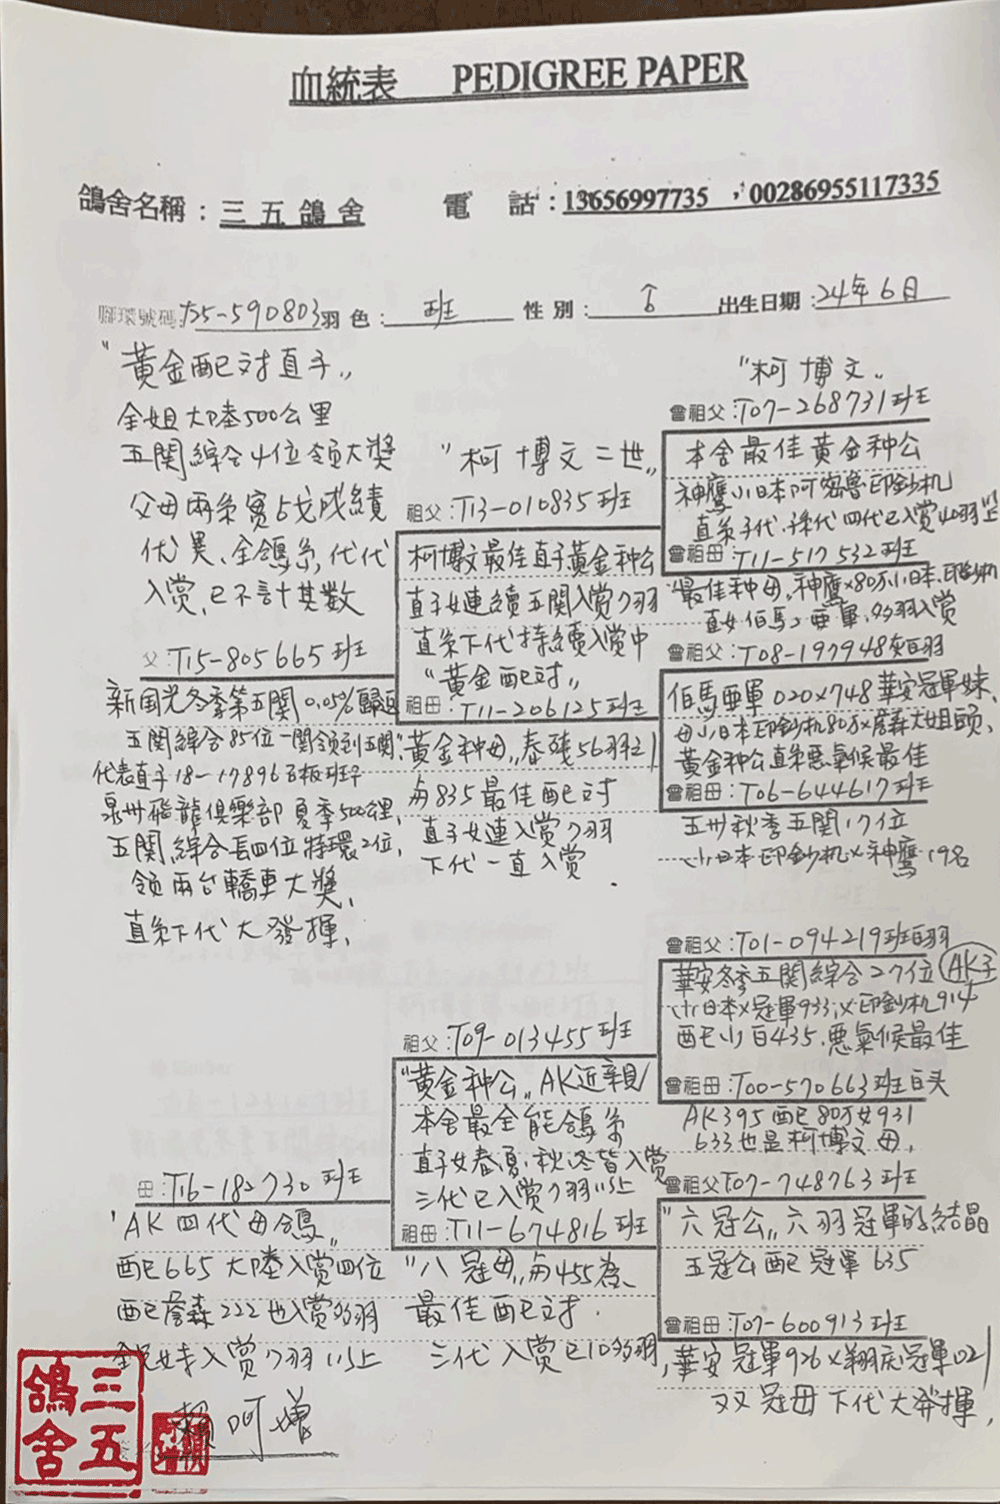 血統表 PEDIGREE PAPER
鴿舍名稱：三五鴿舍 電 話：13656997735 ，00286955117335
腳環號碼： 25-590803 羽色： 班 性別： 출生日期：24年6月
"黃金配对直子"
全姐大陸500公里
五関綜合4位領大獎
父母兩系實戰成績
优異、全鴿系，代代
入赏，已不計其數
父：T15-805665班
五関綜合85位一関領到五関
代表直子18-17896
泉州飛龍俱樂部夏季500公里，
五関綜合長四位特環2位，
領兩台轎車大獎、
直系下代大發揮、
母：T16-182730班
"AK四代母鴿"
配665大陸入赏四位
配詹森222也入赏多羽
入赏7羽以上
賴阿
"柯博文二世"
祖父：T13-010835班
柯博文最佳直子黃金种公
直子女連續五関入赏7羽
直系下代持續入赏中
"黃金配对"
祖母：T11-206125班
黃金种母"泰
与835最佳配对
直子女連入赏7羽
下代一直入赏．
祖父：T09-013455班
"黃金种公"AK近親
本舍最全能鴿系
直子女春夏、秋、冬皆入赏
三代已入赏7羽以上
祖母：T11-674816班
"八冠母"与455為
最佳配对．
三代入赏已10多羽
"柯博文"
曾祖父：T07-268731班
本舍最佳黃金种公
神鷹小日本阿密魯印鈔机
直系子代、孫代四代已入赏40羽以上
曾祖母：T11-517532班
"最佳种母，神鷹×80万小日本、印鈔机
直女伯馬、亞軍、多羽入赏
曾祖父：T08-197948班白羽
伯馬亞軍020×748華安冠軍妹、
母小日本印鈔机80万×詹森大姐頭、
黃金种公直系惡氣候最佳
曾祖母：T06-644617班
五州秋季五関17位
小日本印鈔机×神鷹19名
曾祖父：T01-094219班白羽
華安冬季五関綜合27位 AK王
小日本×冠軍933；×印鈔机914
配小白435、惡氣候最佳
曾祖母：T00-570663班白头
AK395配80万女931
633也是柯博文母，
曾祖父T07-748763班
"六冠公"六羽冠軍的結晶
五冠公配冠軍635
曾祖母：T07-600913班
華安冠軍926×翔慶冠軍021
双双冠母下代大發揮，
三五鴿舍